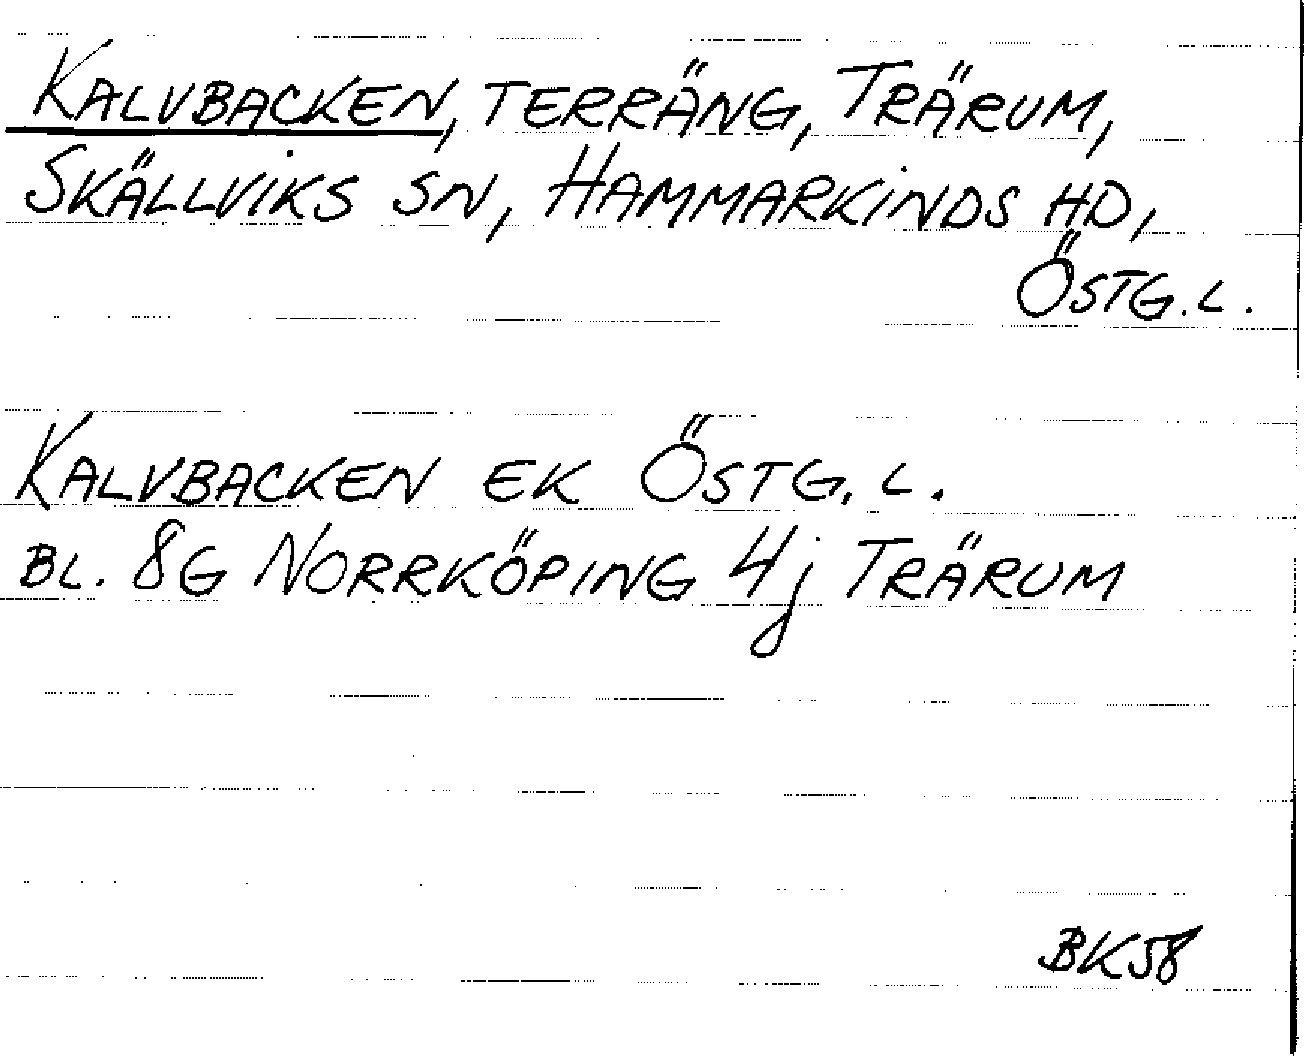 KALVBACKEN, TERRÄNG, TRÄRUM,
SKÄLLVIKS SN, HAMMARKINDS HD,
ÖSTG.L.
KALVBACKEN EK ÖSTG.L.
BL. 8G NORRKÖPING 4j TRÄRUM
BK58